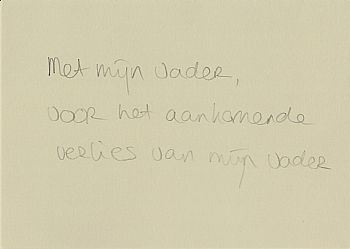 Met mijn vader,
voor het aankomende
verlies van mijn vader